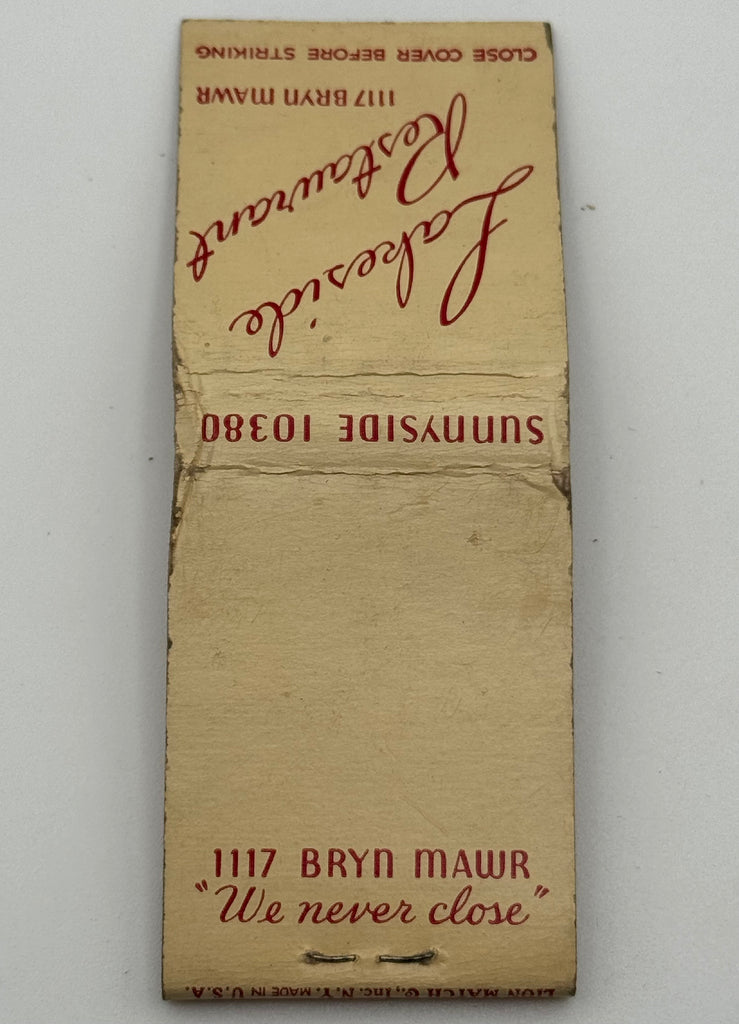 CLOSE COVER BEFORE STRIKING
1117 BRYN MAWR
Lakeside
Restaurant
SUNNYSIDE 10380
1117 BRYN MAWR
"We never close"
LION MATCH Co., Inc. N.Y. MADE IN U.S.A.